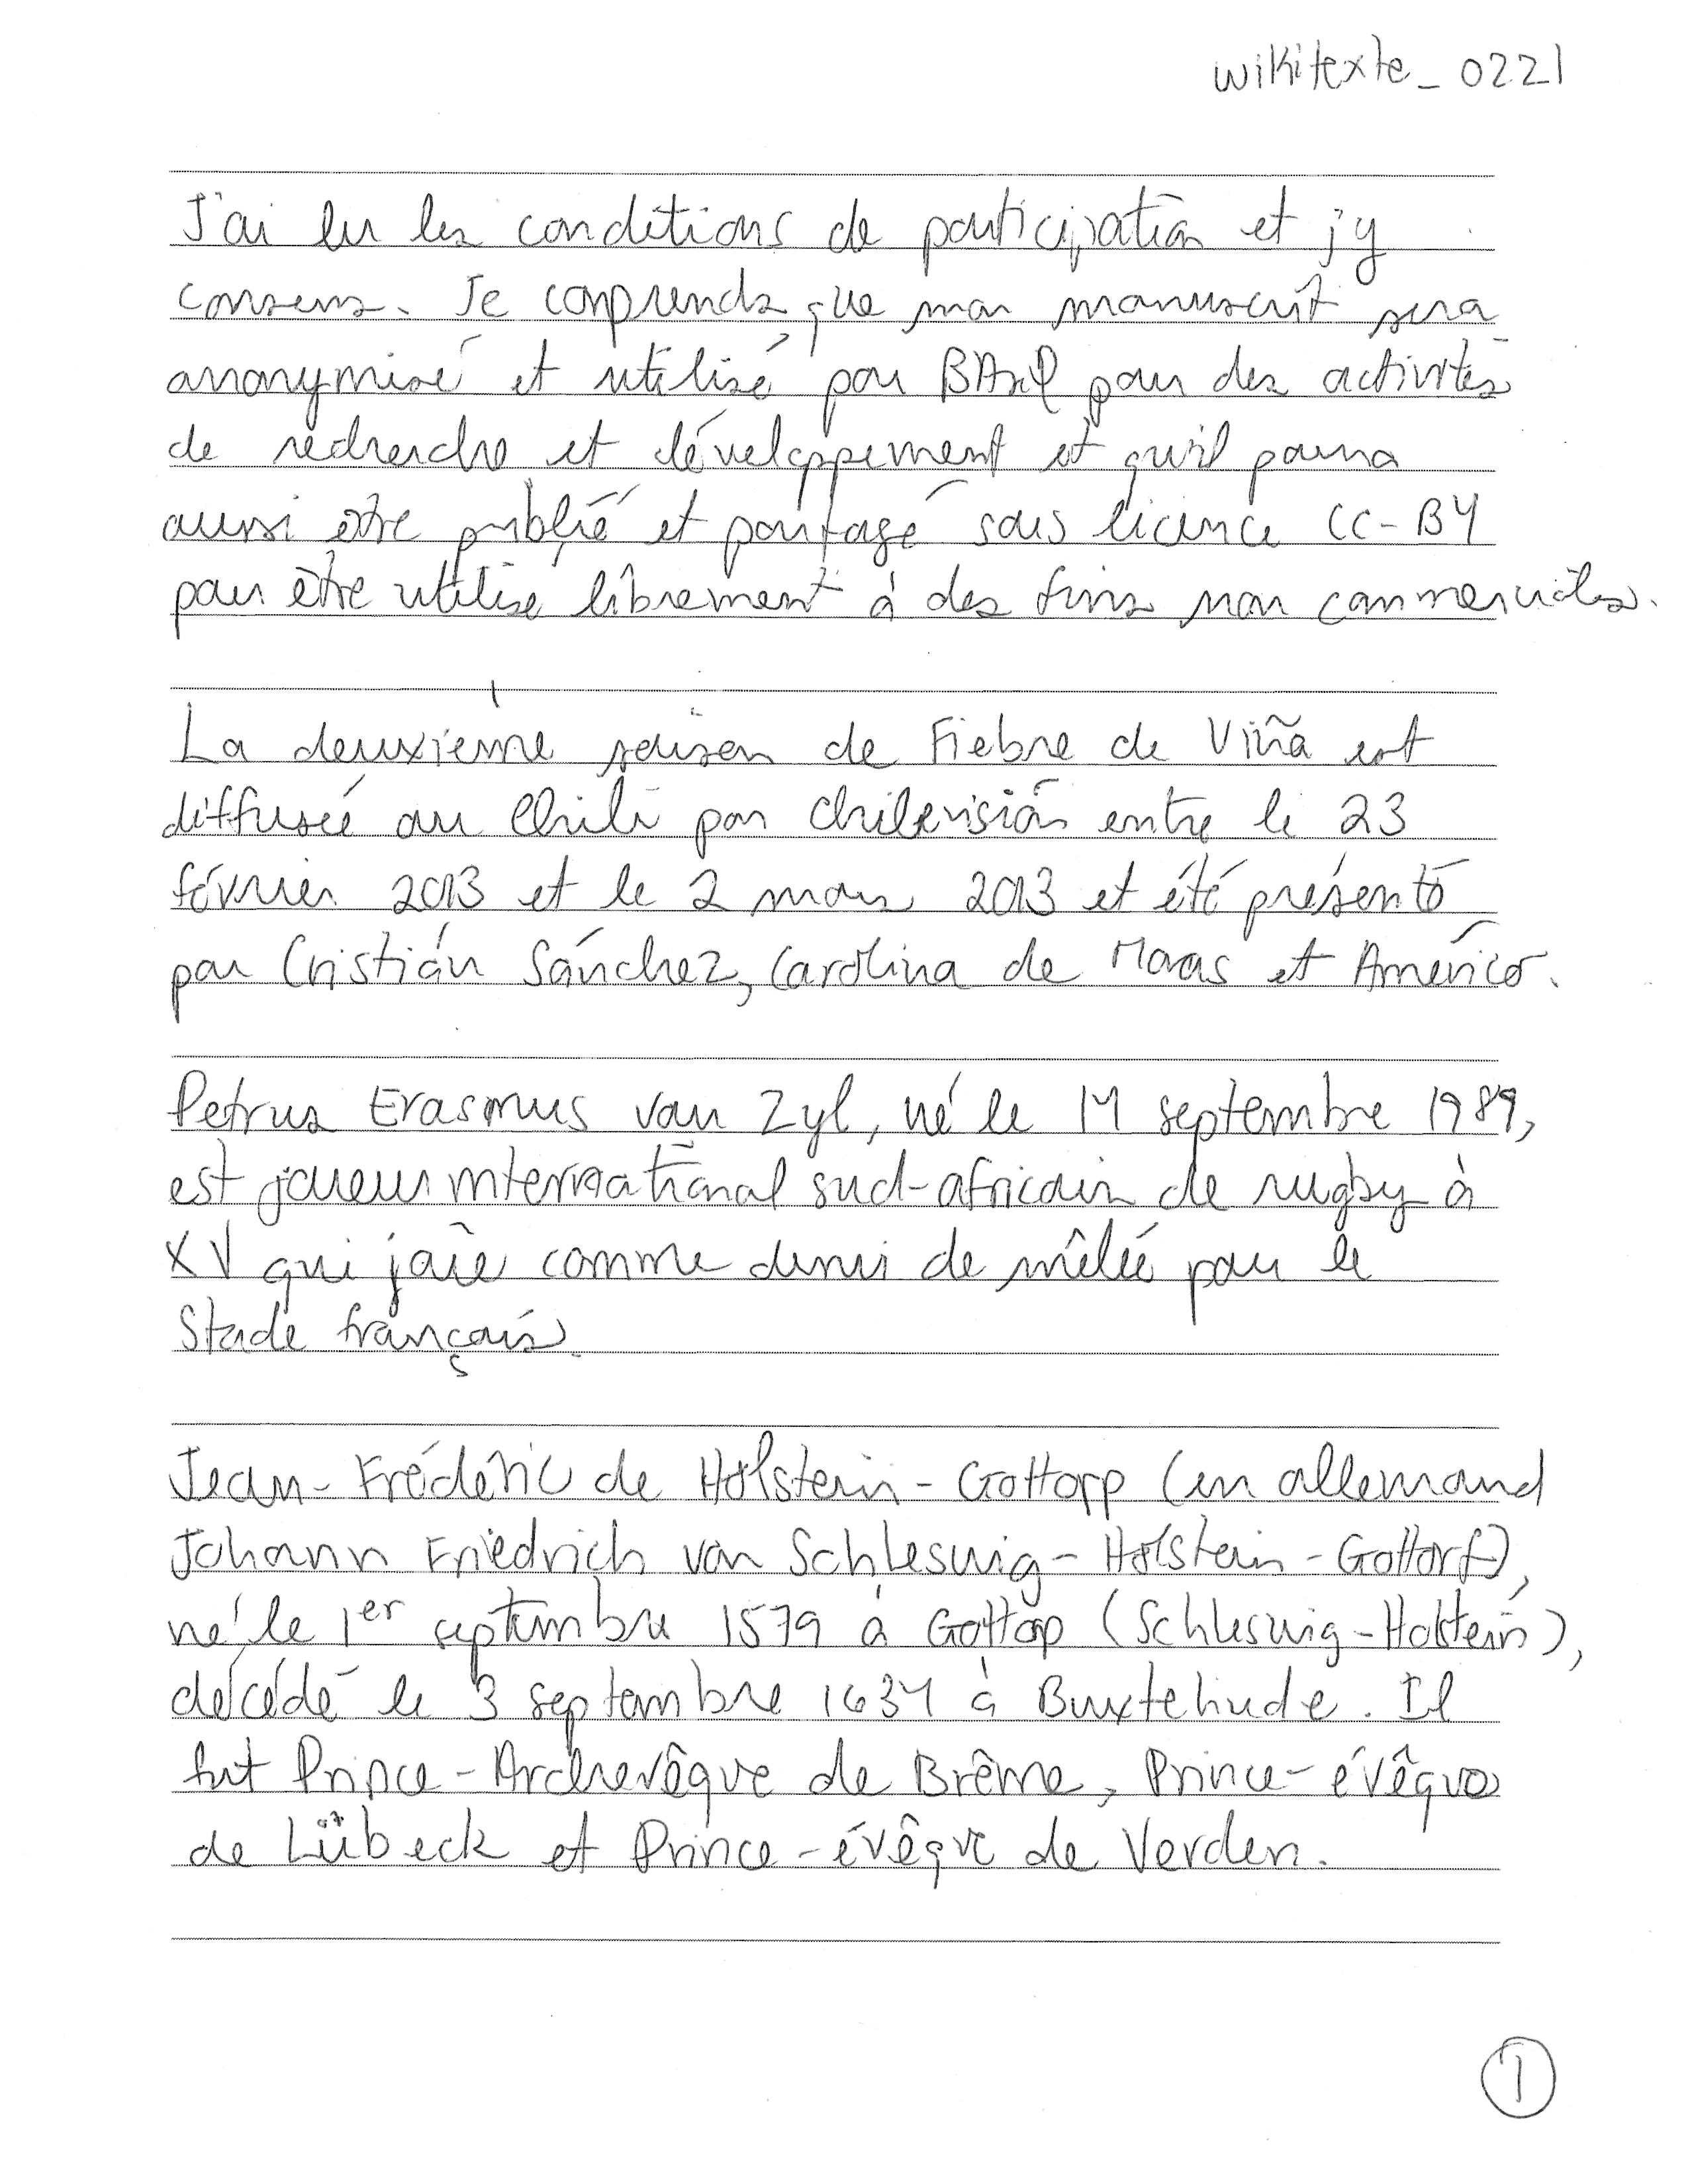 wikitexte_0221
J'ai lu les conditions de participation et j'y
consens. Je comprends que mon manuscrit sera
anonymisé et utilisé par BAnQ pour des activités
de recherche et développement et qu'il pourra
aussi être publié et partagé sous licence CC-BY
pour être utilisé librement à des fins non commerciales.
La deuxième saison de Fiebre de Viña est
diffusée au Chili par Chilevisión entre le 23
février 2013 et le 2 mars 2013 et été présenté
par Cristián Sánchez, Carolina de Moras et Américo.
Petrus Erasmus van Zyl, né le 14 septembre 1989,
est joueur international sud-africain de rugby à
XV qui joue comme demi de mêlée pour le
Stade français.
Jean-Frédéric de Holstein-Gottorp (en allemand
Johann Friedrich von Schleswig-Holstein-Gottorf),
né le 1er septembre 1579 à Gottorp (Schleswig-Holstein),
décédé le 3 septembre 1634 à Buxtehude. Il
fut Prince-Archevêque de Brême, Prince-évêque
de Lübeck et Prince-évêque de Verden.
1